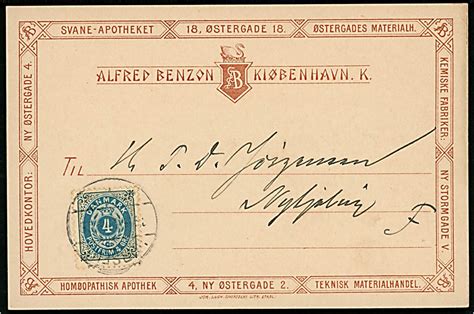 SVANE-APOTHEKET 18, ØSTERGADE 18. ØSTERGADES MATERIALH.
AB
ALFRED BENZON KIØBENHAVN. K.
HOVEDKONTOR: NY ØSTERGADE 4.
KEMISKE FABRIKER: NY STORMGADE V.
TIL
T. D. Jörgensen
Nykjöbing F
DANMARK
4
HOMØOPATHISK APOTHEK 4, NY ØSTERGADE 2. TEKNISK MATERIALHANDEL.